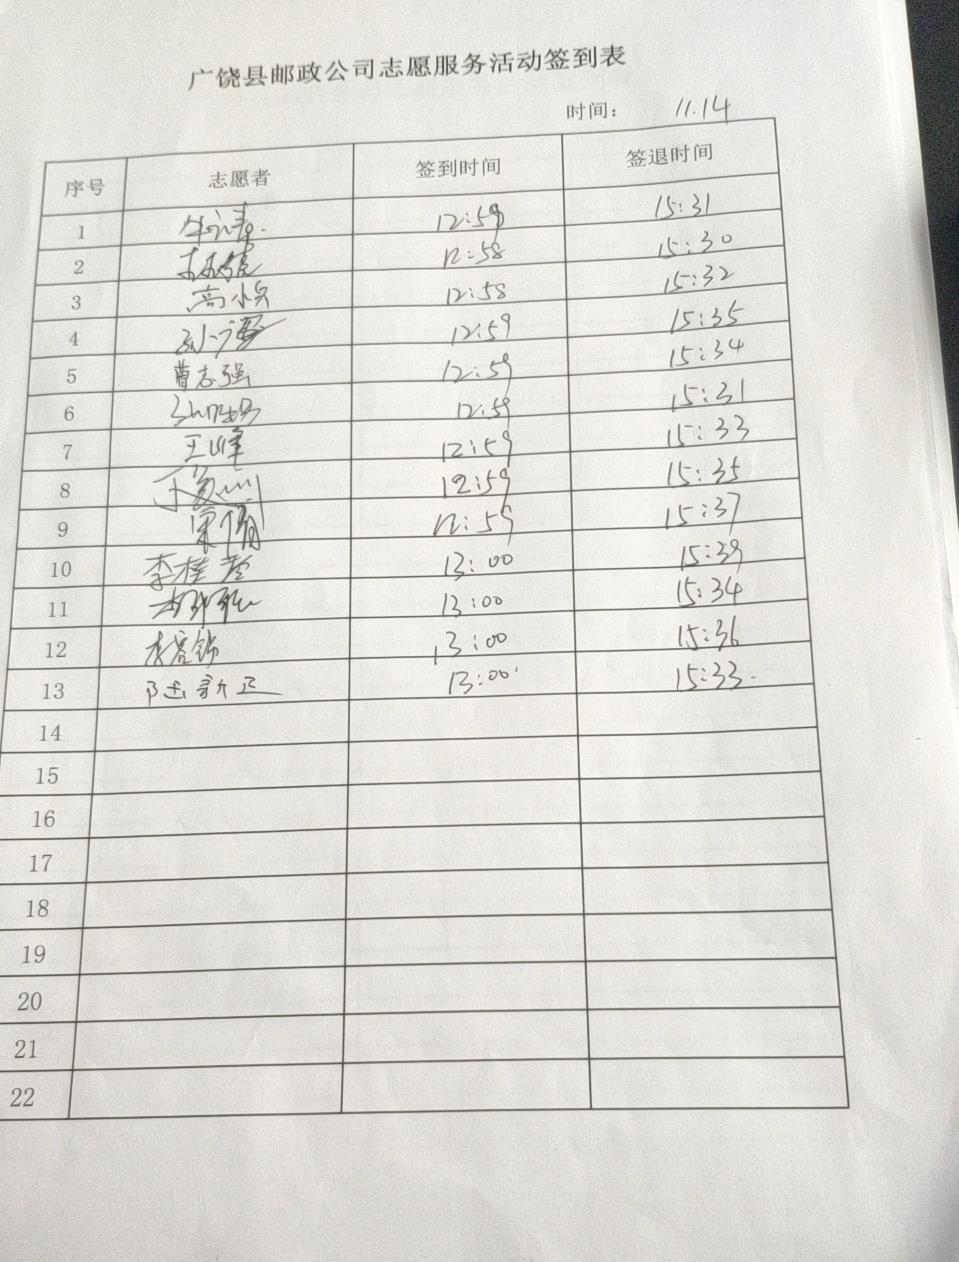 广饶县邮政公司志愿服务活动签到表
时间： 11.14
序号 志愿者 签到时间 签退时间
1 12:59 15:31
2 12:58 15:30
3 高小兵 12:58 15:32
4 12:59 15:35
5 曹志强 12:59 15:34
6 12:59 15:31
7 王峰 12:59 15:33
8 12:59 15:35
9 宋倩 12:59 15:37
10 李桂 13:00 15:39
11 13:00 15:34
12 李 13:00 15:36
13 陆新正 13:00 15:33
14
15
16
17
18
19
20
21
22